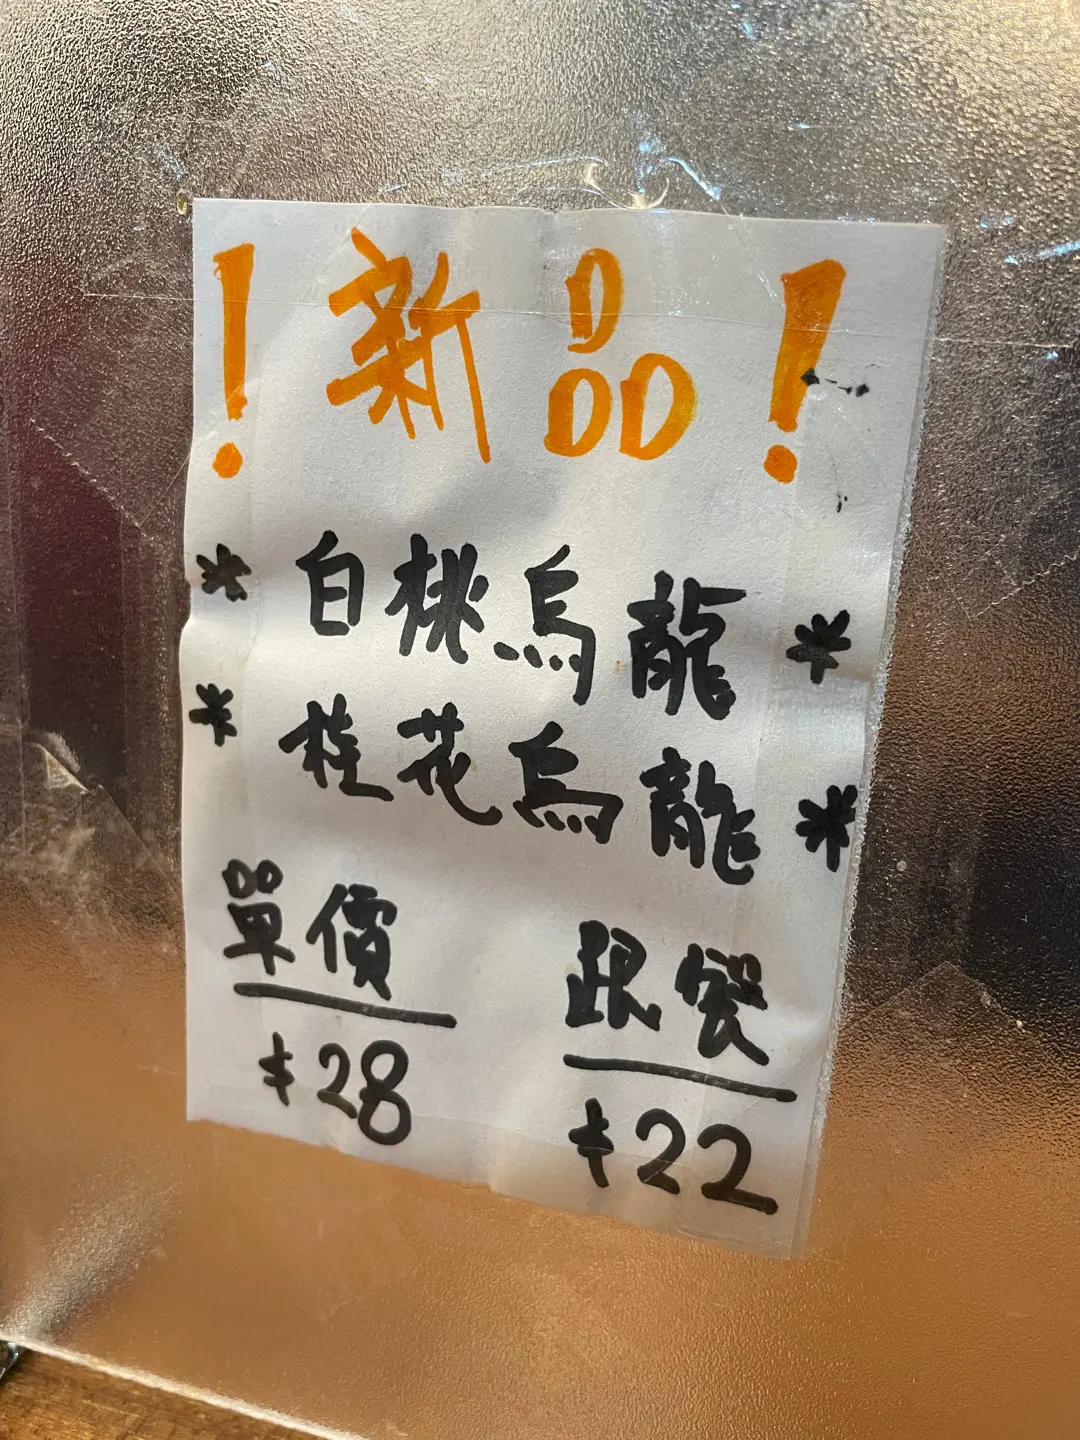 ！新品！
* 白桃烏龍 *
* 桂花烏龍 *
單價 跟餐
$28 $22